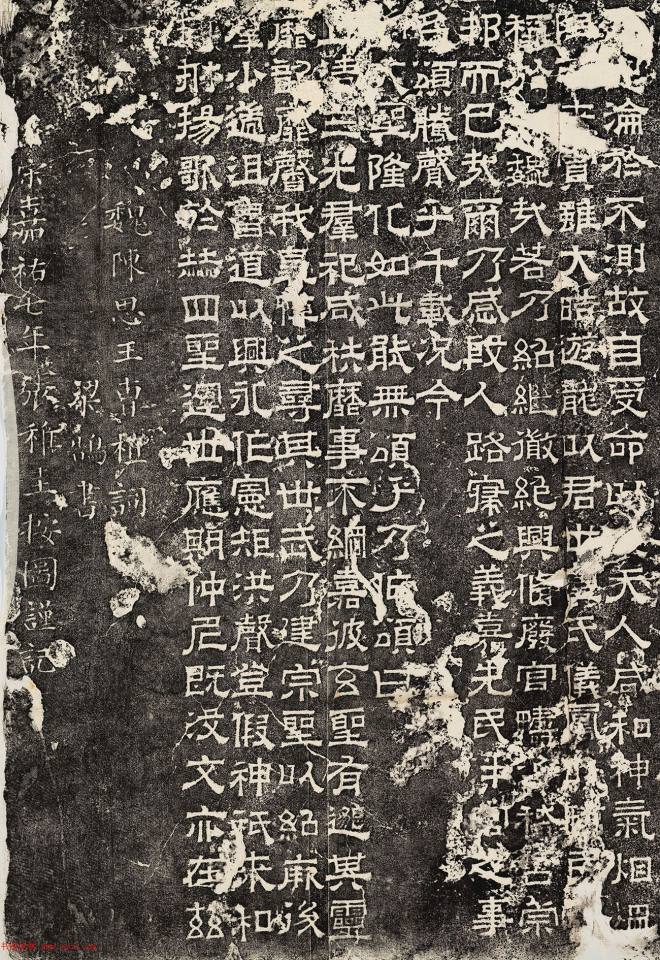 淪於不測故自受命以天人咸和神氣烟煴
險而賓雖大皓遊龍以君世氏儀鳳以臨民
稱於魏哉若乃紹繼微絕興脩廢官疇咨稽古崇
邦而已哉爾乃感殷人路寢之義嘉先民泮宮之事
名頌騰聲乎千載況今
聖隆化如此能無頌乎乃作頌曰
清三光羣祀咸秩靡事不綱嘉彼玄聖有邈其靈
靡韶靡聲我皇悼之尋其世武乃建宗聖以紹厥後
小遄沮魯道以興永作憲矩洪聲登假神祇來和
揚歌於赫四聖運世應期仲尼既沒文亦在茲
魏陳思王曹植詞
梁鵠書
宋嘉祐七年張稚圭按圖謹記